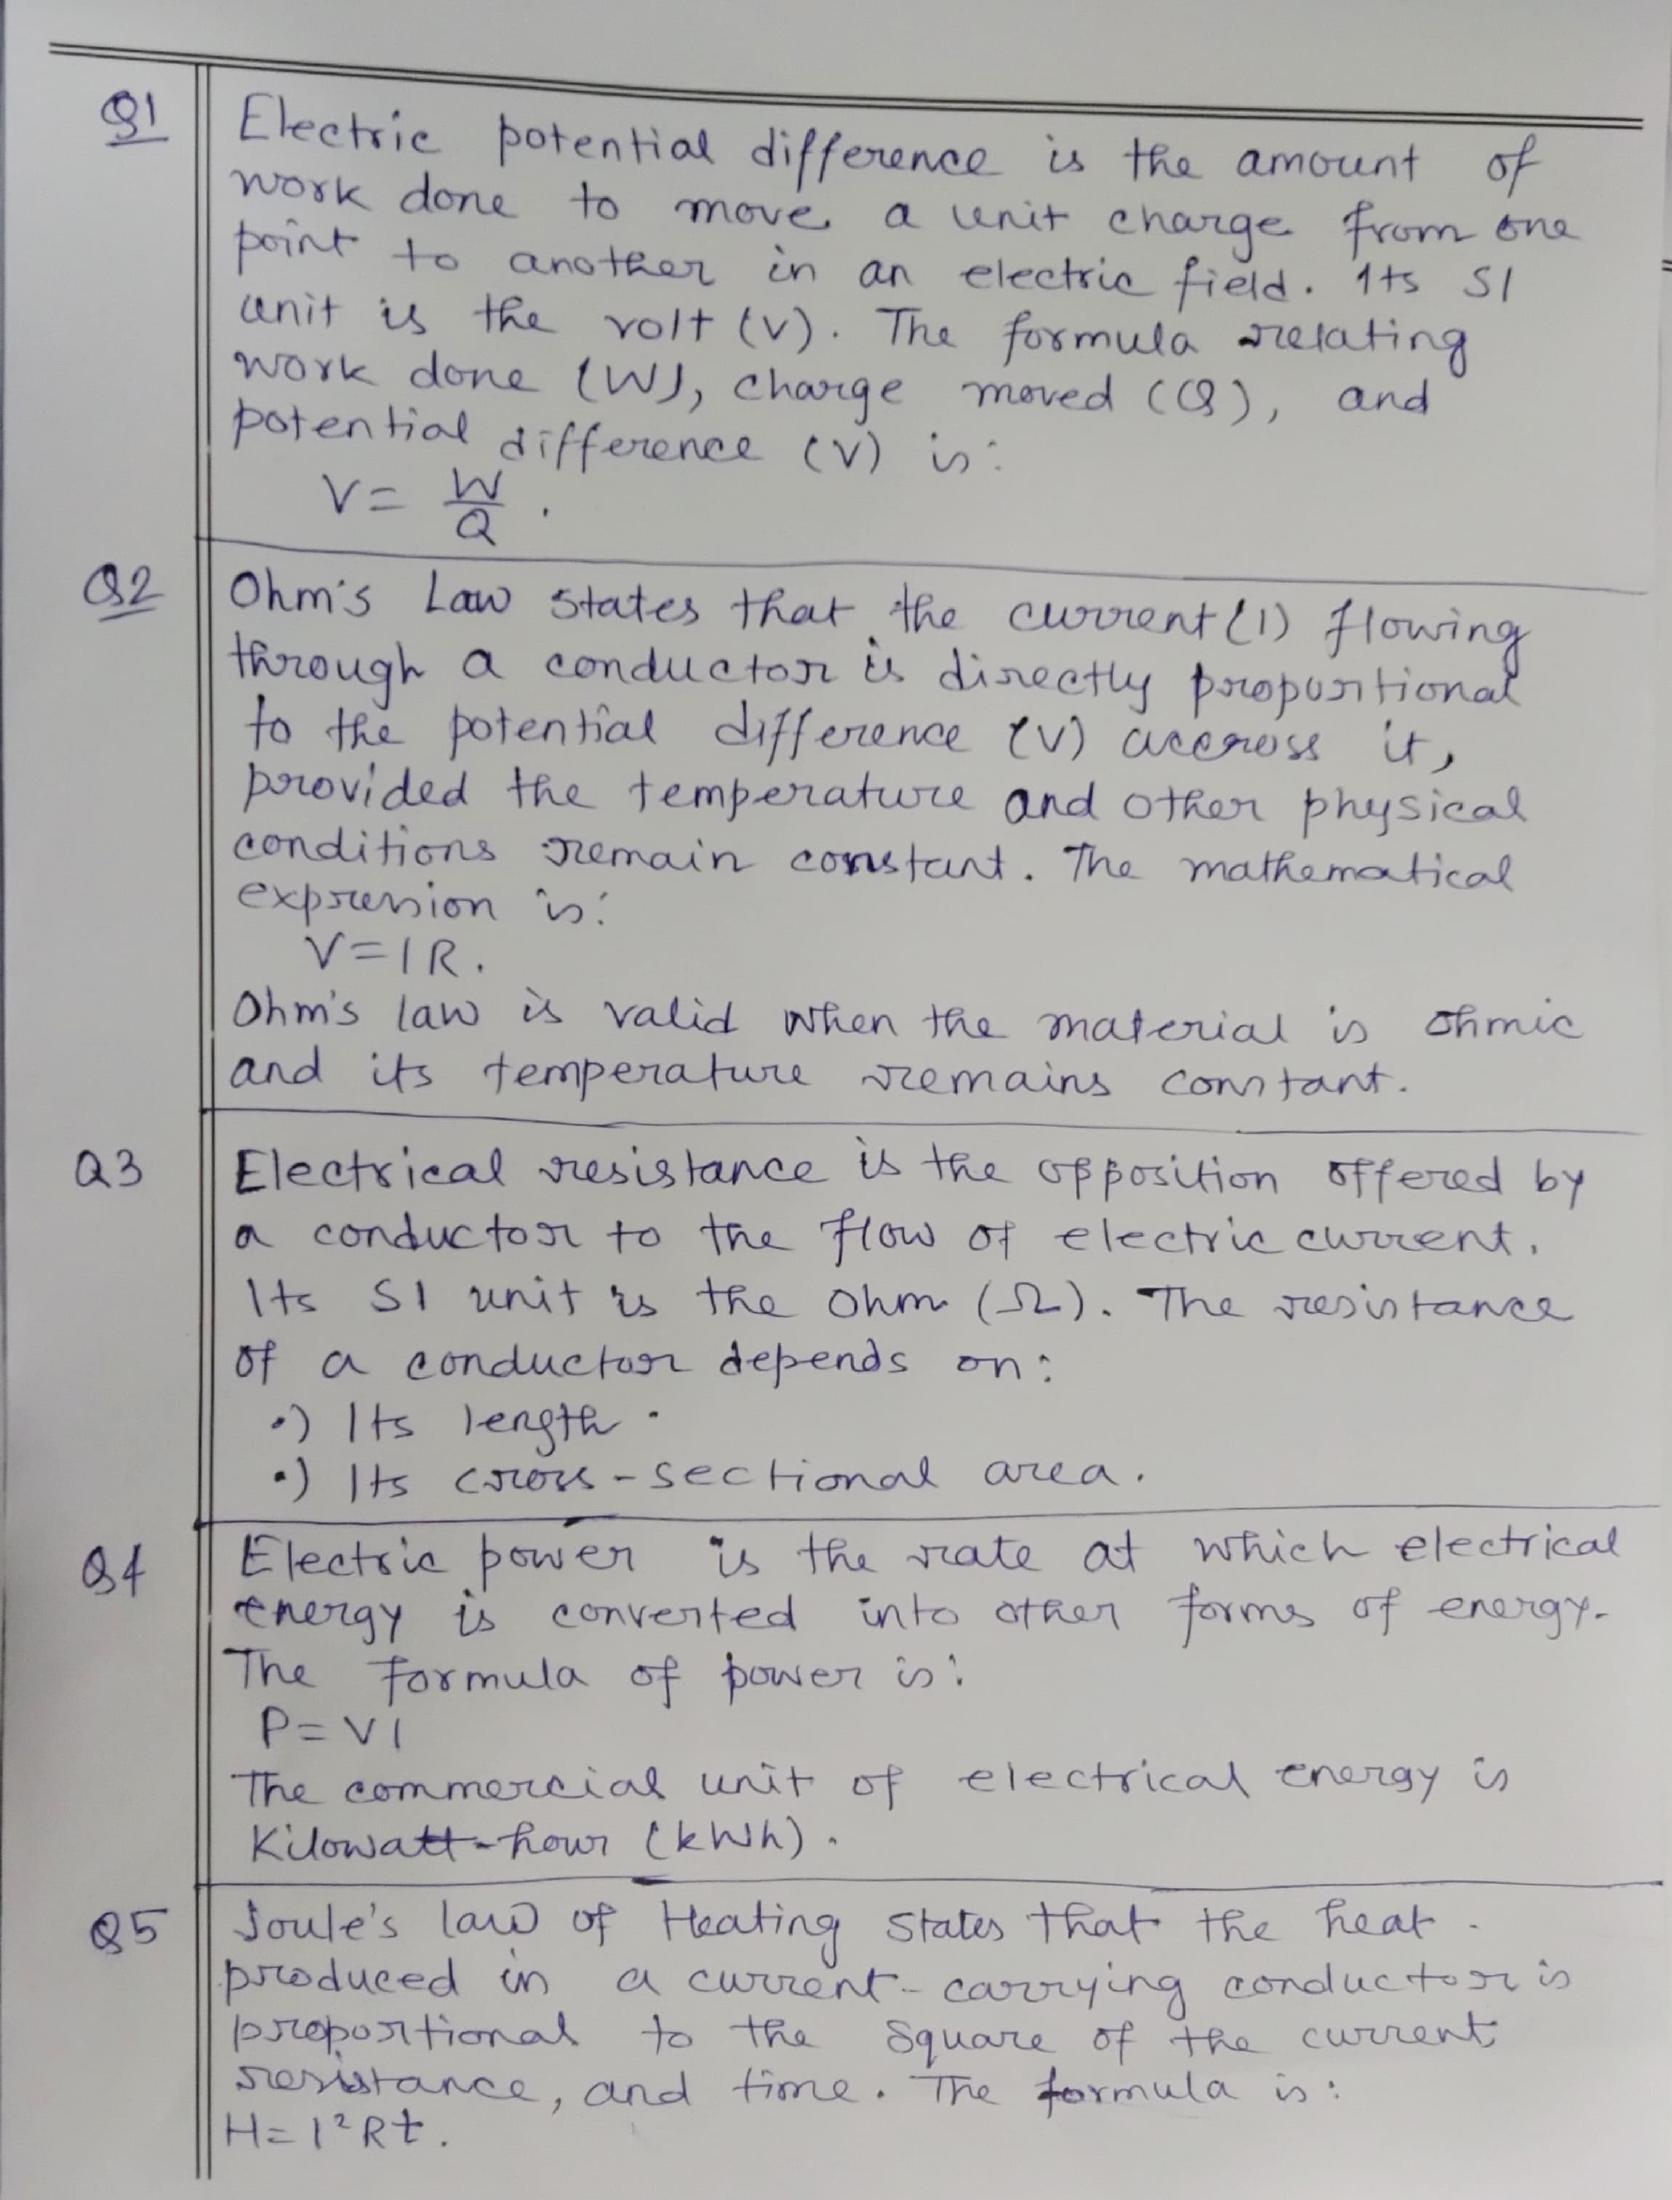 Q1
Electric potential difference is the amount of
work done to move a unit charge from one
point to another in an electric field. Its SI
unit is the volt (V). The formula relating
work done (W), charge moved (Q), and
potential difference (V) is:
V = W/Q.
Q2
Ohm's Law states that the current (I) flowing
through a conductor is directly proportional
to the potential difference (V) accross it,
provided the temperature and other physical
conditions remain constant. The mathematical
expression is:
V=IR.
Ohm's law is valid when the material is ohmic
and its temperature remains constant.
Q3
Electrical resistance is the opposition offered by
a conductor to the flow of electric current.
Its SI unit is the ohm (Ω). The resistance
of a conductor depends on:
•) Its length.
•) Its cross-sectional area.
Q4
Electric power is the rate at which electrical
energy is converted into other forms of energy.
The formula of power is:
P=VI
The commercial unit of electrical energy is
Kilowatt-hour (kWh).
Q5
Joule's law of Heating states that the heat
produced in a current-carrying conductor is
proportional to the square of the current
resistance, and time. The formula is:
H=I²Rt.